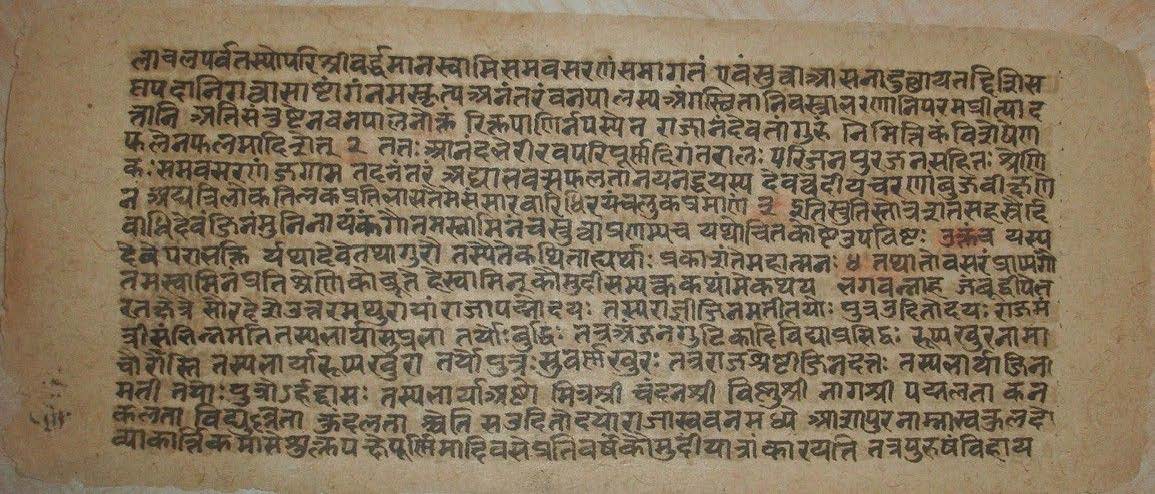 लाचलपर्वतस्योपरिश्रीवर्द्धमानस्वामिसमवसरणंसमागतं एवंश्रुत्वाआसनादुछायतद्दिशिस
प्तपदानिगत्वासाष्टांगंनमस्कृत्यअनंतरंवनपालस्यअंगस्थितानिवस्त्राभरणानिपरमप्रीत्याद
त्तानि अतिसंतुष्टेनवनपालेनोक्तं रिक्तपाणिर्नपस्येत राजानंदैवतंगुरुं नैमित्तिकंविशेषेण
फलेनफलमादिशेत् २ ततः आनंदभेरीरवपरिपूर्णदिगंतरालः परिजनपुरजनसहितः श्रेणि
कः समवसरणंजगाम तदनंतरं अद्याभवत्सफलतानयनद्वयस्य देवत्वदीयचरणांबुजवीक्षणे
न अद्यत्रिलोकतिलकप्रतिभाषतेमेसंसारवारिधिरयंचुलुकप्रमाणं ३ इतिस्तुतिस्तोत्रशतसहस्रैर्दे
वाधिदेवंजिनंमुनिनायकंगौतमस्वामिनंचस्तुत्वाप्रणम्यच यथोचितकोष्टेउपविष्टः उक्तंच यस्य
देवेपराभक्ति र्यथादेवेतथागुरौ तस्यैतेकथिताह्यर्थाः प्रकाशंतेमहात्मनः ४ तथातावसरंप्राप्यगौ
तमस्वामिनंप्रतिश्रेणिकोब्रूते हेस्वामिन्कौमुदीसम्यक्त्वकथांमेकथय भगवन्नाह जंबूद्वीपेभ
रतक्षेत्रे सौरदेशेउत्तरमथुरायांराजापद्मोदयः तस्यराज्ञीजिनमतीतयोः पुत्रउदितोदयः राजमं
त्रीसंभिन्नमतितस्यभार्यासुप्रभा तयोःबुद्धिः तत्रअंजनगुटिकादिविद्याप्रसिद्धः रूप्यखुरनामा
चौरोस्ति तस्यभार्यारूप्यखुरा तयोपुत्रः सुवर्णखुरः तत्रराजश्रेष्टीजिनदत्तः तस्यभार्याजिन
मती तयोः पुत्रोऽर्हद्दासः तस्यभार्याअष्टौ मित्रश्री चंदनश्री विष्णुश्री नागश्री पद्मलता कन
कलता विद्युल्लता कुंदलता श्चेति सउदितोदयोराजास्ववनमध्ये
व्याकार्त्तिकमासेशुक्लपक्षेपूर्णिमादिवसेप्रतिवर्षंकौमुदीयात्रांकारयति तत्रपुरुषंविहाय